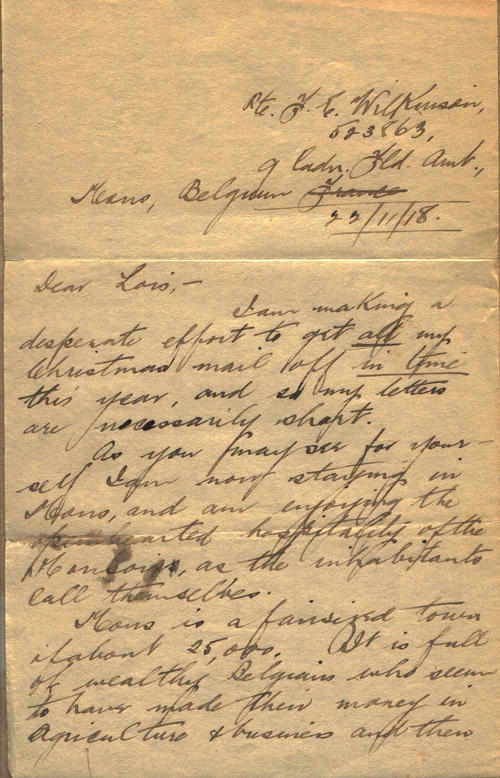 Pte. F. E. Wilkinson,
523863,
9 Cadn. Fld. Amb.,
Mons, Belgium France
22/11/18.
Dear Lois,-
I am making a
desperate effort to get all my
Christmas mail off in time
this year, and so my letters
are necessarily short.
As you may see for your-
self I am now staying in
Mons, and am enjoying the
open hearted hospitality of the
Montois, as the inhabitants
call themselves.
Mons is a fairsized town
of about 25,000. It is full
of wealthy Belgians who seem
to have made their money in
Agriculture & business and then